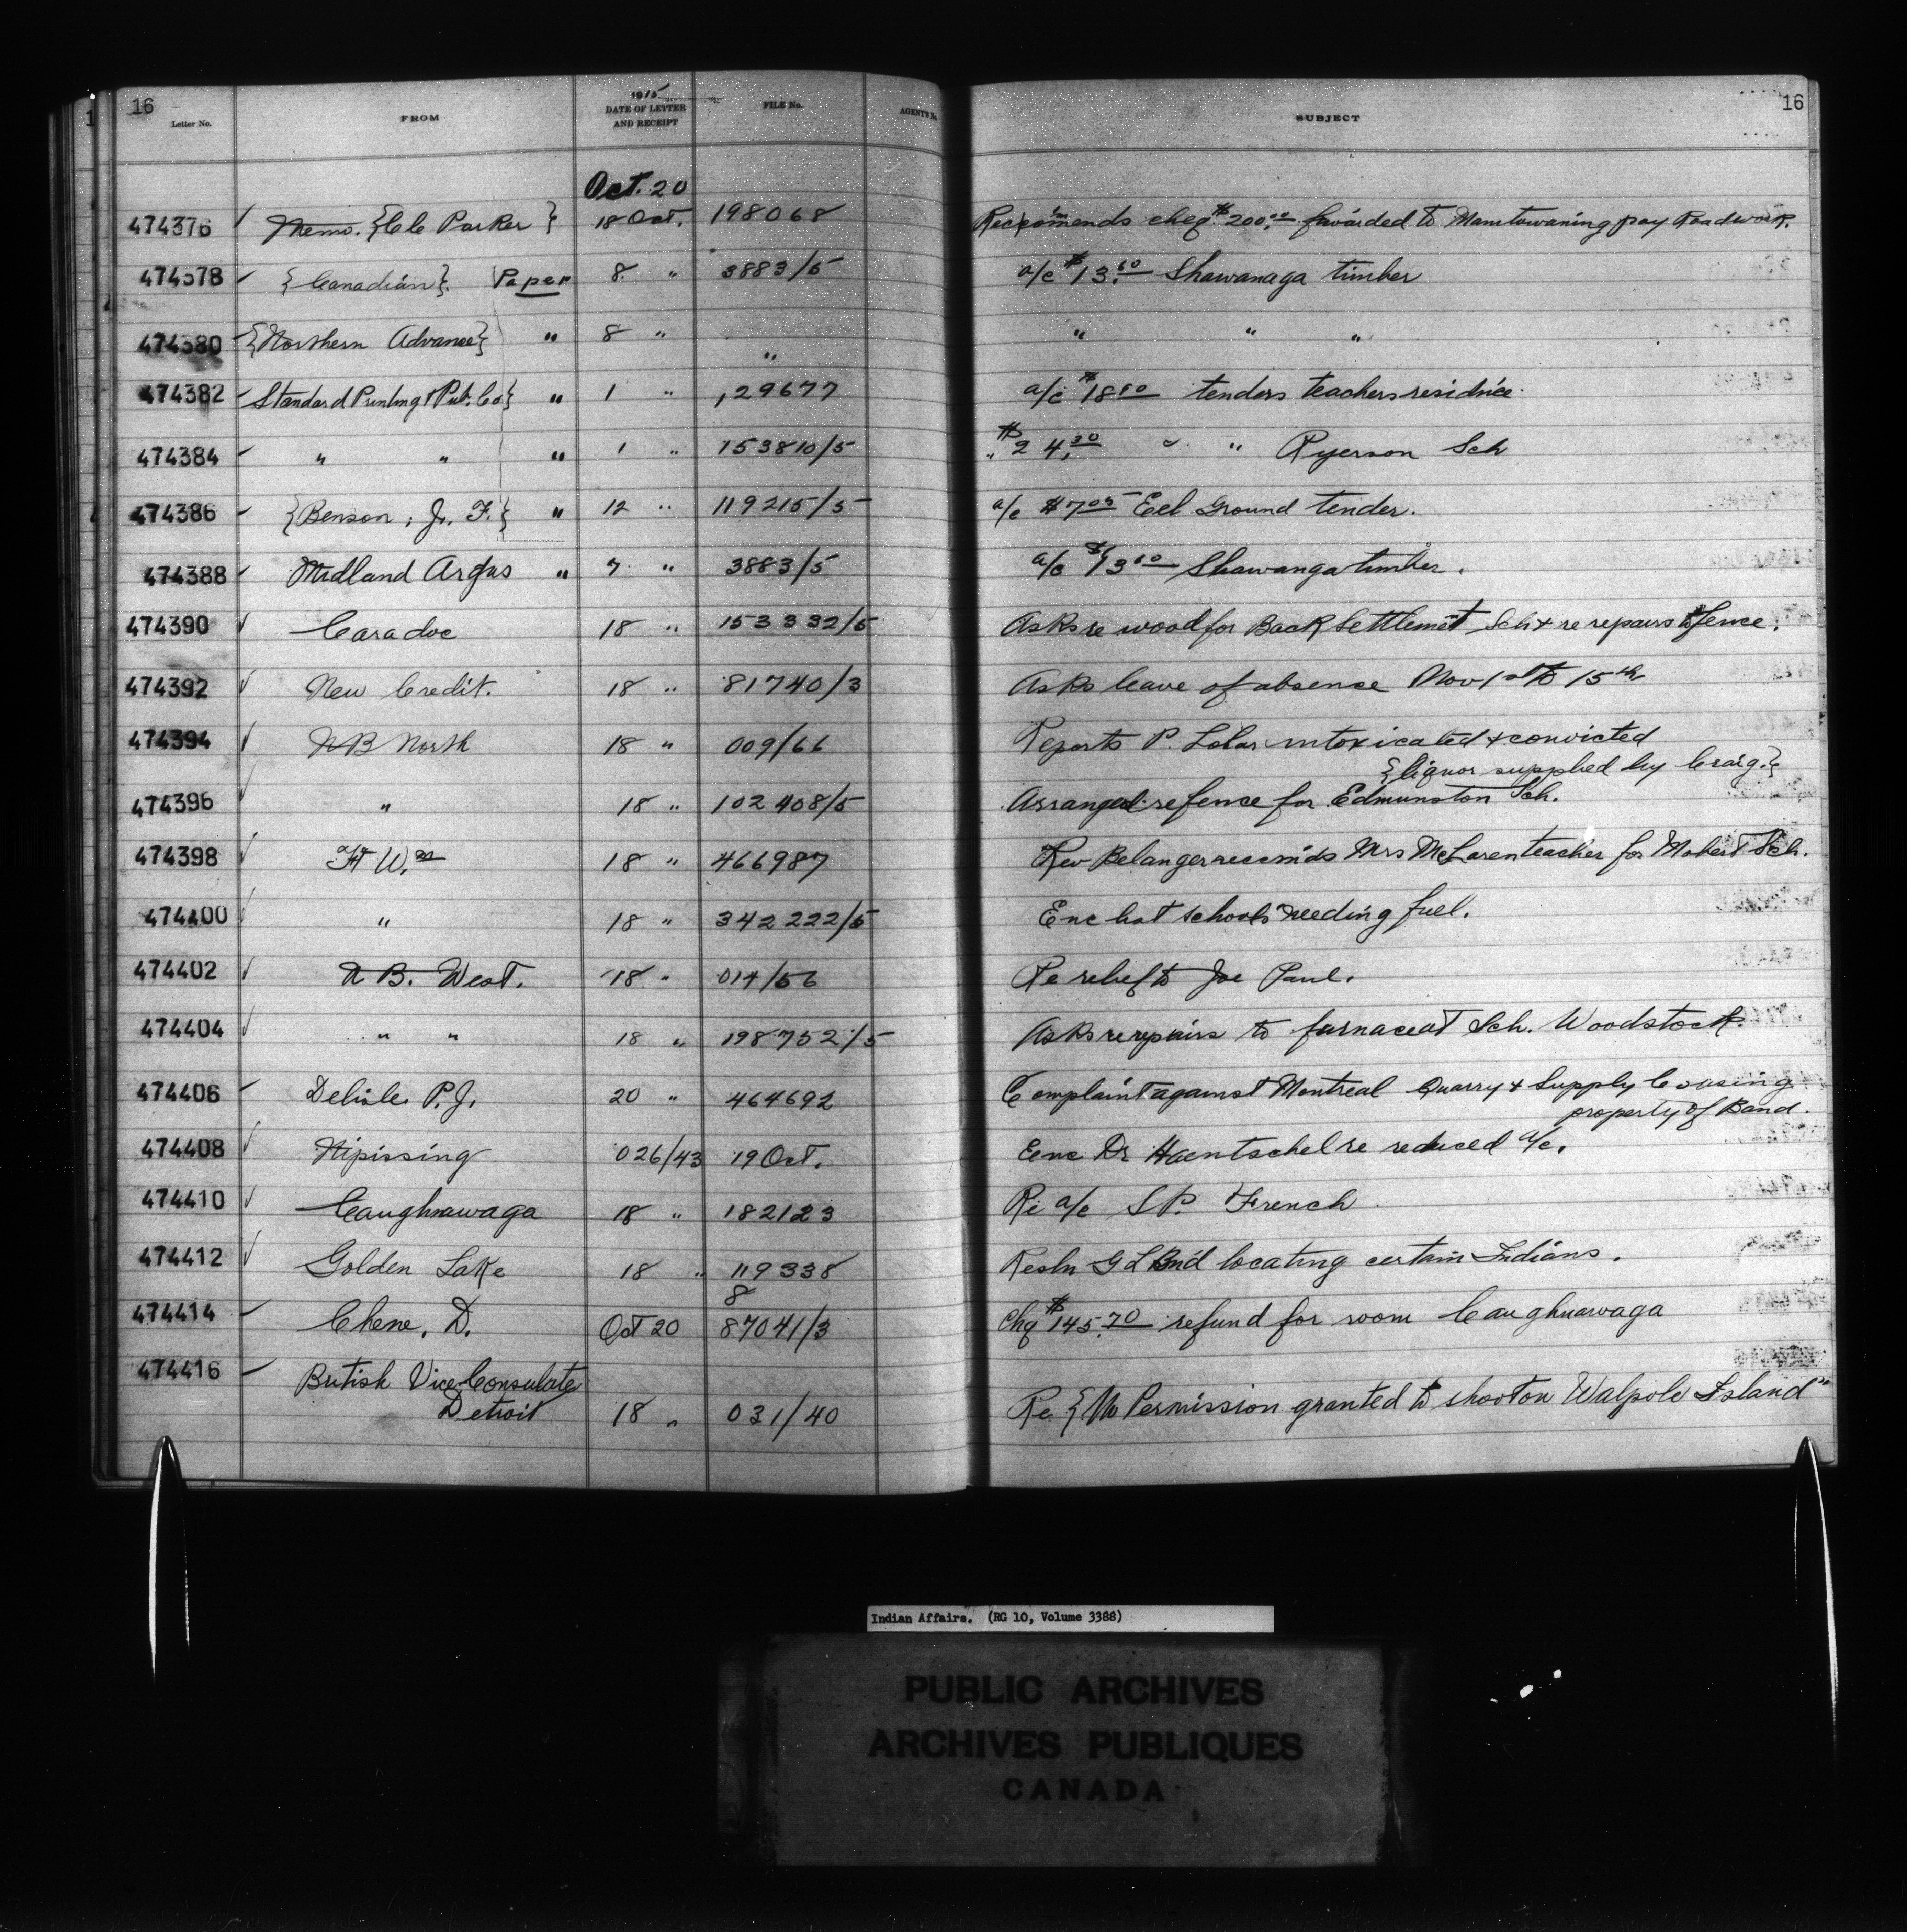 16
16
Letter No. FROM 1915 DATE OF LETTER AND RECEIPT FILE No. AGENTS No. SUBJECT
Oct. 20
474376 Memo. {C C Parker } 18 Oct. 198068 Reccomends cheq. $200.00 forwarded to Manitowaning pay Roadwork.
474378 {Canadian} Paper 8 " 3883/5 a/c $13.60 Shawanaga timber
474380 {Northern Advance} " 8 " " " " "
474382 Standard Printing & Pub. Co} " 1 " 129677 a/c $18.80 tenders teachers residnce.
474384 " " " 1 " 153810/5 " $24.30 " " Ryerson Sch
474386 {Benson, J. F.} " 12 " 119215/5 a/c $7.05 Eel Ground tender.
474388 Midland Argus " 7 " 3883/5 a/c $13.60 Shawanga timber.
474390 Caradoc 18 " 153332/5 Asks re wood for Back Settlemet Sch & re repairs to fence.
474392 New Credit. 18 " 81740/3 Asks leave of absence Nov 1st to 15th
474394 N B North 18 " 009/66 Reports P. Lolar intoxicated & convicted
{liquor supplied by Craig.}
474396 " 18 " 102408/5 Arranged re fence for Edmunston Sch.
474398 Ft Wm 18 " 466987 Rev Belanger recomids Mrs McLaren teacher for Mobert Sch.
474400 " 18 " 342222/5 Enc list schools needing fuel.
474402 N B. West. 18 " 014/56 Re relief to Joe Paul.
474404 " " 18 " 198752/5 Asks re repairs to furnace at Sch. Woodstock.
474406 Delisle P. J. 20 " 464692 Complaint against Montreal Quarry & Supply Co using
property of Band.
474408 Nipissing 026/43 19 Oct. Eenc Dr Haentschel re reduced a/c.
474410 Caughnawaga 18 " 182123 Re a/c S P. French
474412 Golden Lake 18 " 119338 Resln G L Bnd locating certain Indians.
8
474414 Chene, D. Oct 20 87041/3 Chq $145.70 refund for room Caughnawaga
474416 British Vice Consulate
Detroit 18 " 031/40 Re {No Permission granted to shoot on Walpole Island"
Indian Affairs. (RG 10, Volume 3388)
PUBLIC ARCHIVES
ARCHIVES PUBLIQUES
CANADA